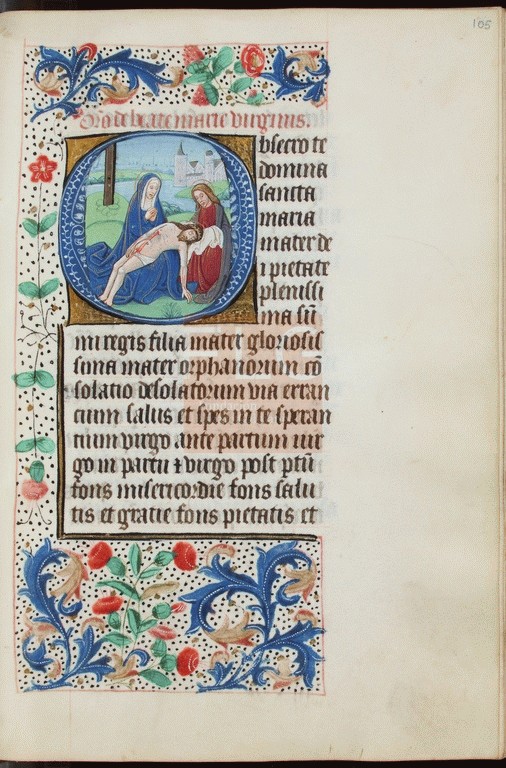 105
Oro de beate marie virginis.
Obsecro te
domina
sancta
maria
mater de
i pietate
plenissi
ma sū
mi regis filia mater gloriosis
sima mater orphanorum cō
solatio desolatorum via erran
cium salus et spes in te speran
cium virgo ante partum uir
go in partu ⁊ virgo post ptū
fons misericordie fons salu
tis et gratie fons pietatis et